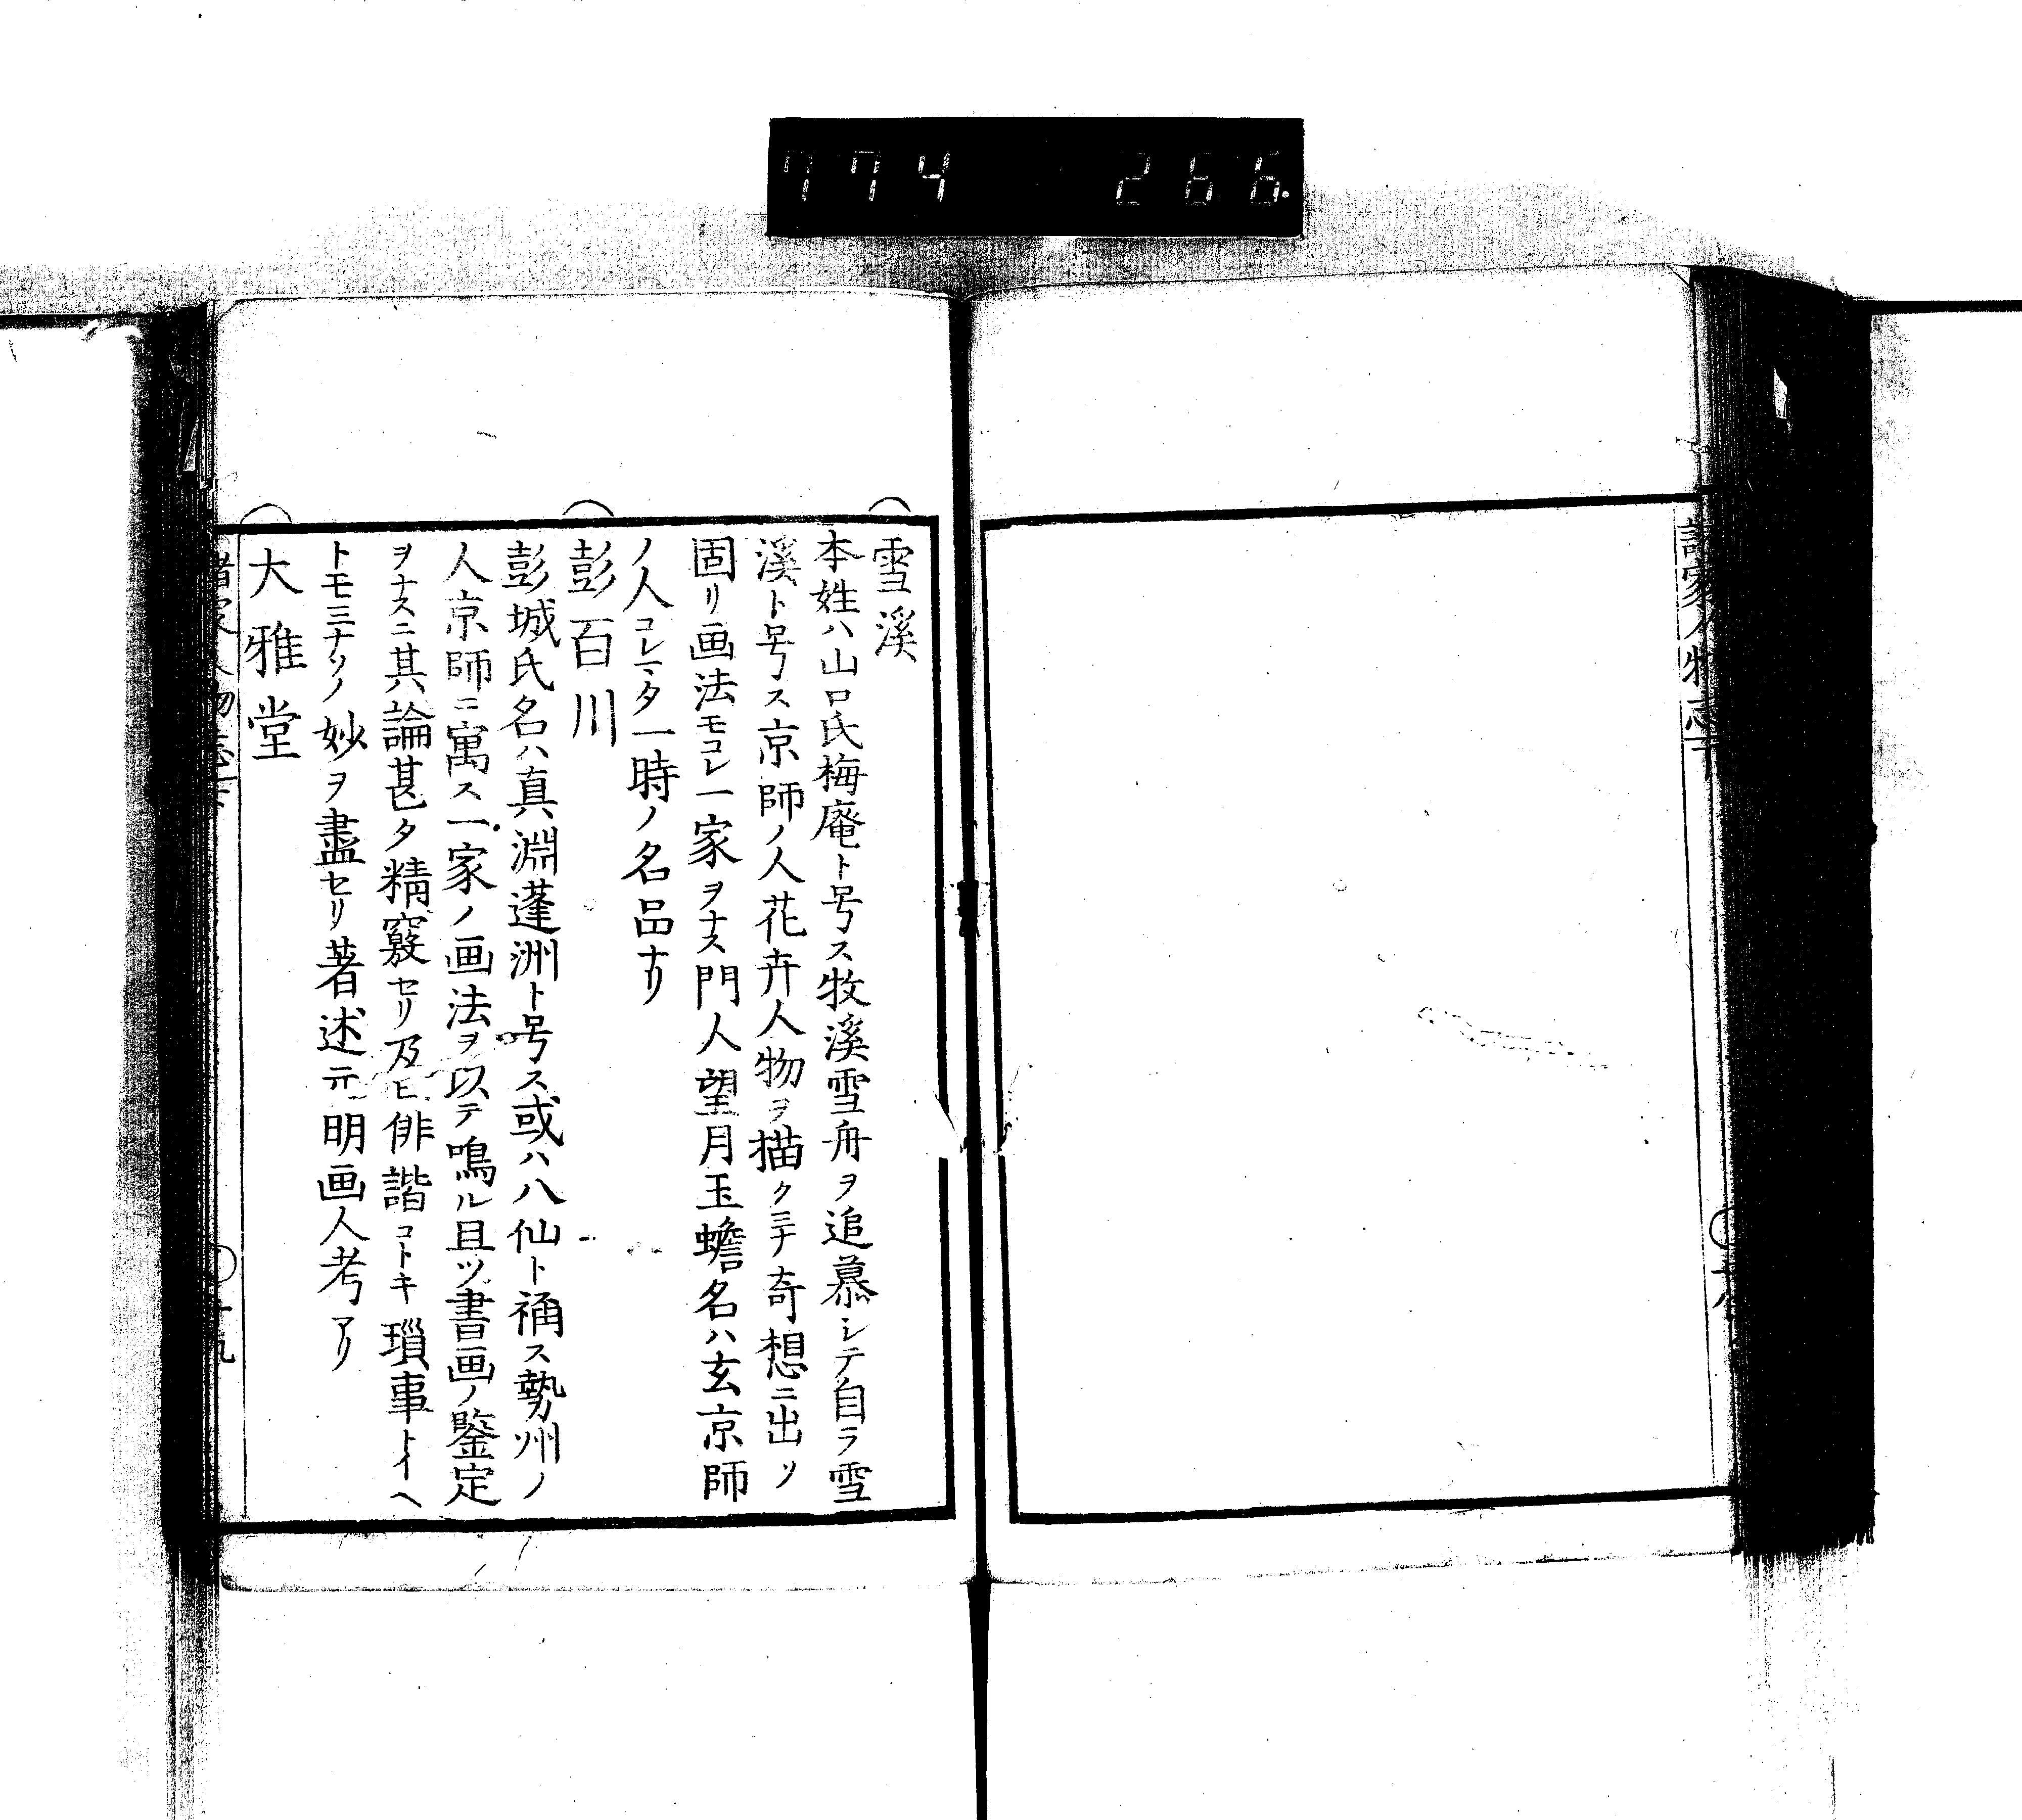 774 266.
諸家人物志下
雪溪
本姓ハ山口氏梅庵ト号ス牧溪雪舟ヲ追慕シテ自ラ雪
溪ト号ス京師ノ人花卉人物ヲ描クミナ奇想ニ出ツ
固リ画法モコレ一家ヲナス門人望月玉蟾名ハ玄京師
ノ人コレマタ一時ノ名品ナリ
彭百川
彭城氏名ハ真淵蓬洲ト号ス或ハ八仙ト稱ス勢州ノ
人京師ニ寓ス一家ノ画法ヲ以テ鳴ル且ツ書画ノ鑒定
ヲナスニ其論甚タ精竅セリ及ヒ俳諧コトキ瑣事トイヘ
トモミナソノ妙ヲ盡セリ著述元明画人考アリ
大雅堂
諸家人物志下